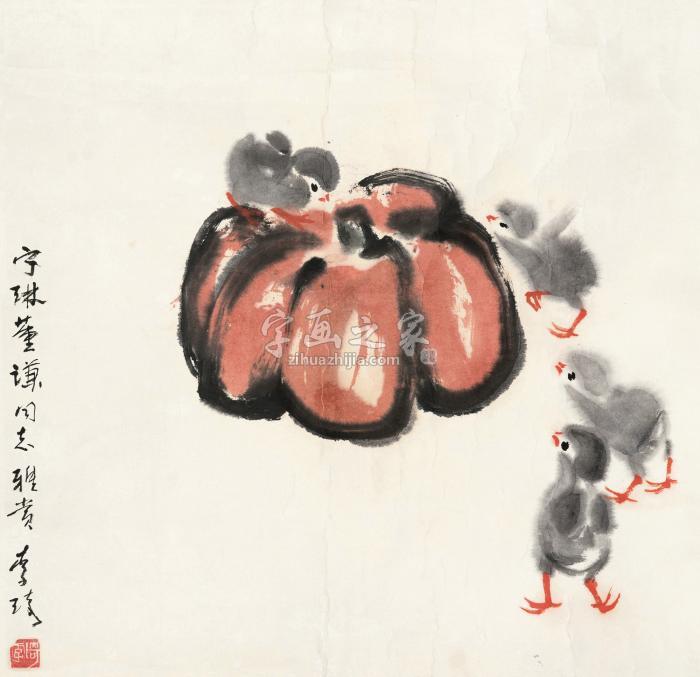 宁琳董谦同志雅赏 李琦
字画之家
zihuazhijia.com